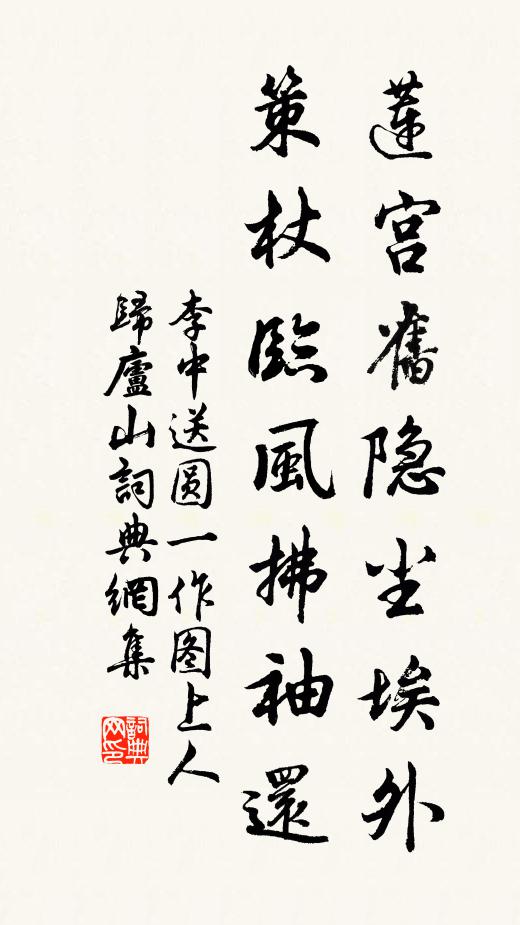 蓮宮舊隐尘埃外
策杖臨風拂袖還
李中送圓一作图上人
歸廬山詞典網集
詞典网印